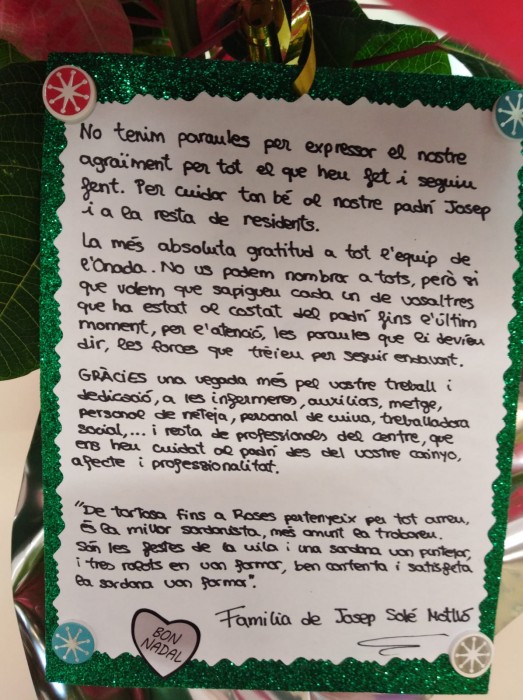 No tenim paraules per expressar el nostre
agraïment per tot el que heu fet i seguiu
fent. Per cuidar tan bé al nostre padrí Josep
i a la resta de residents.
La més absoluta gratitud a tot l'equip de
l'Onada. No us podem nombrar a tots, però si
que volem que sapigueu cada un de vosaltres
que ha estat al costat del padrí fins l'últim
moment, per l'atenció, les paraules que li devíeu
dir, les forces que trèieu per seguir endavant.
GRÀCIES una vegada més pel vostre treball i
dedicació, a les infermeres, auxiliars, metge,
personal de neteja, personal de cuina, treballadora
social,... i resta de professionals del centre, que
ens heu cuidat al padrí des del vostre carinyo,
afecte i professionalitat.
"De Tortosa fins a Roses pertenyeix per tot arreu,
és la millor sardanista, més amunt la trobareu.
Són les festes de la vila i una sardana van puntejar,
i tres rotets en van formar, ben contenta i satisfeta
la sardana van formar".
Família de Josep Solé
BON
NADAL